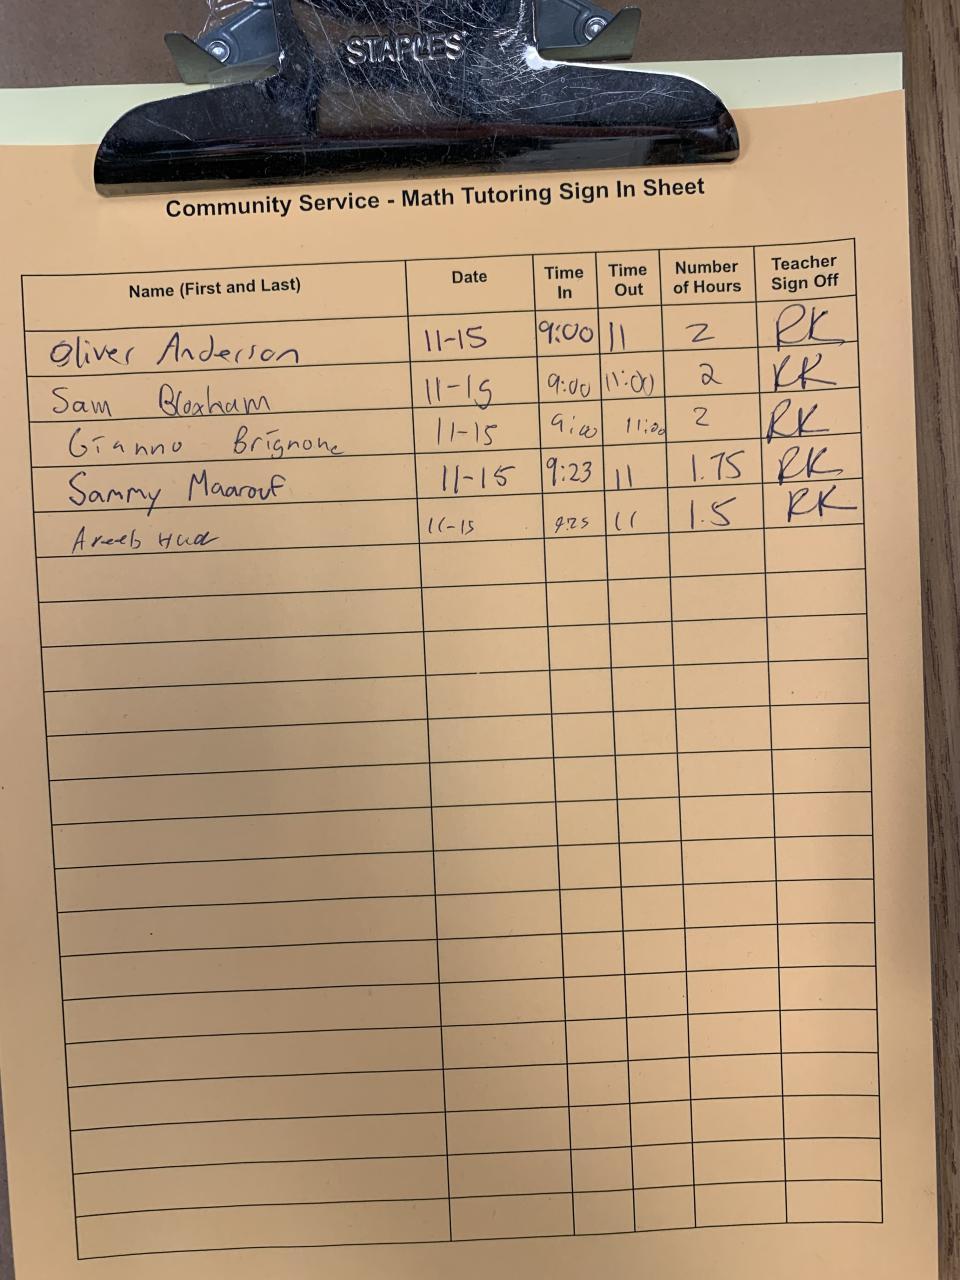 STAPLES
Community Service - Math Tutoring Sign In Sheet
Name (First and Last) Date Time In Time Out Number of Hours Teacher Sign Off
Oliver Anderson 11-15 9:00 11 2 RK
Sam Bloxham 11-15 9:00 11:00 2 RK
Gianno Brignone 11-15 9:00 11:00 2 RK
Sammy Maarouf 11-15 9:23 11 1.75 RK
Areeb 11-15 9:25 11 1.5 RK